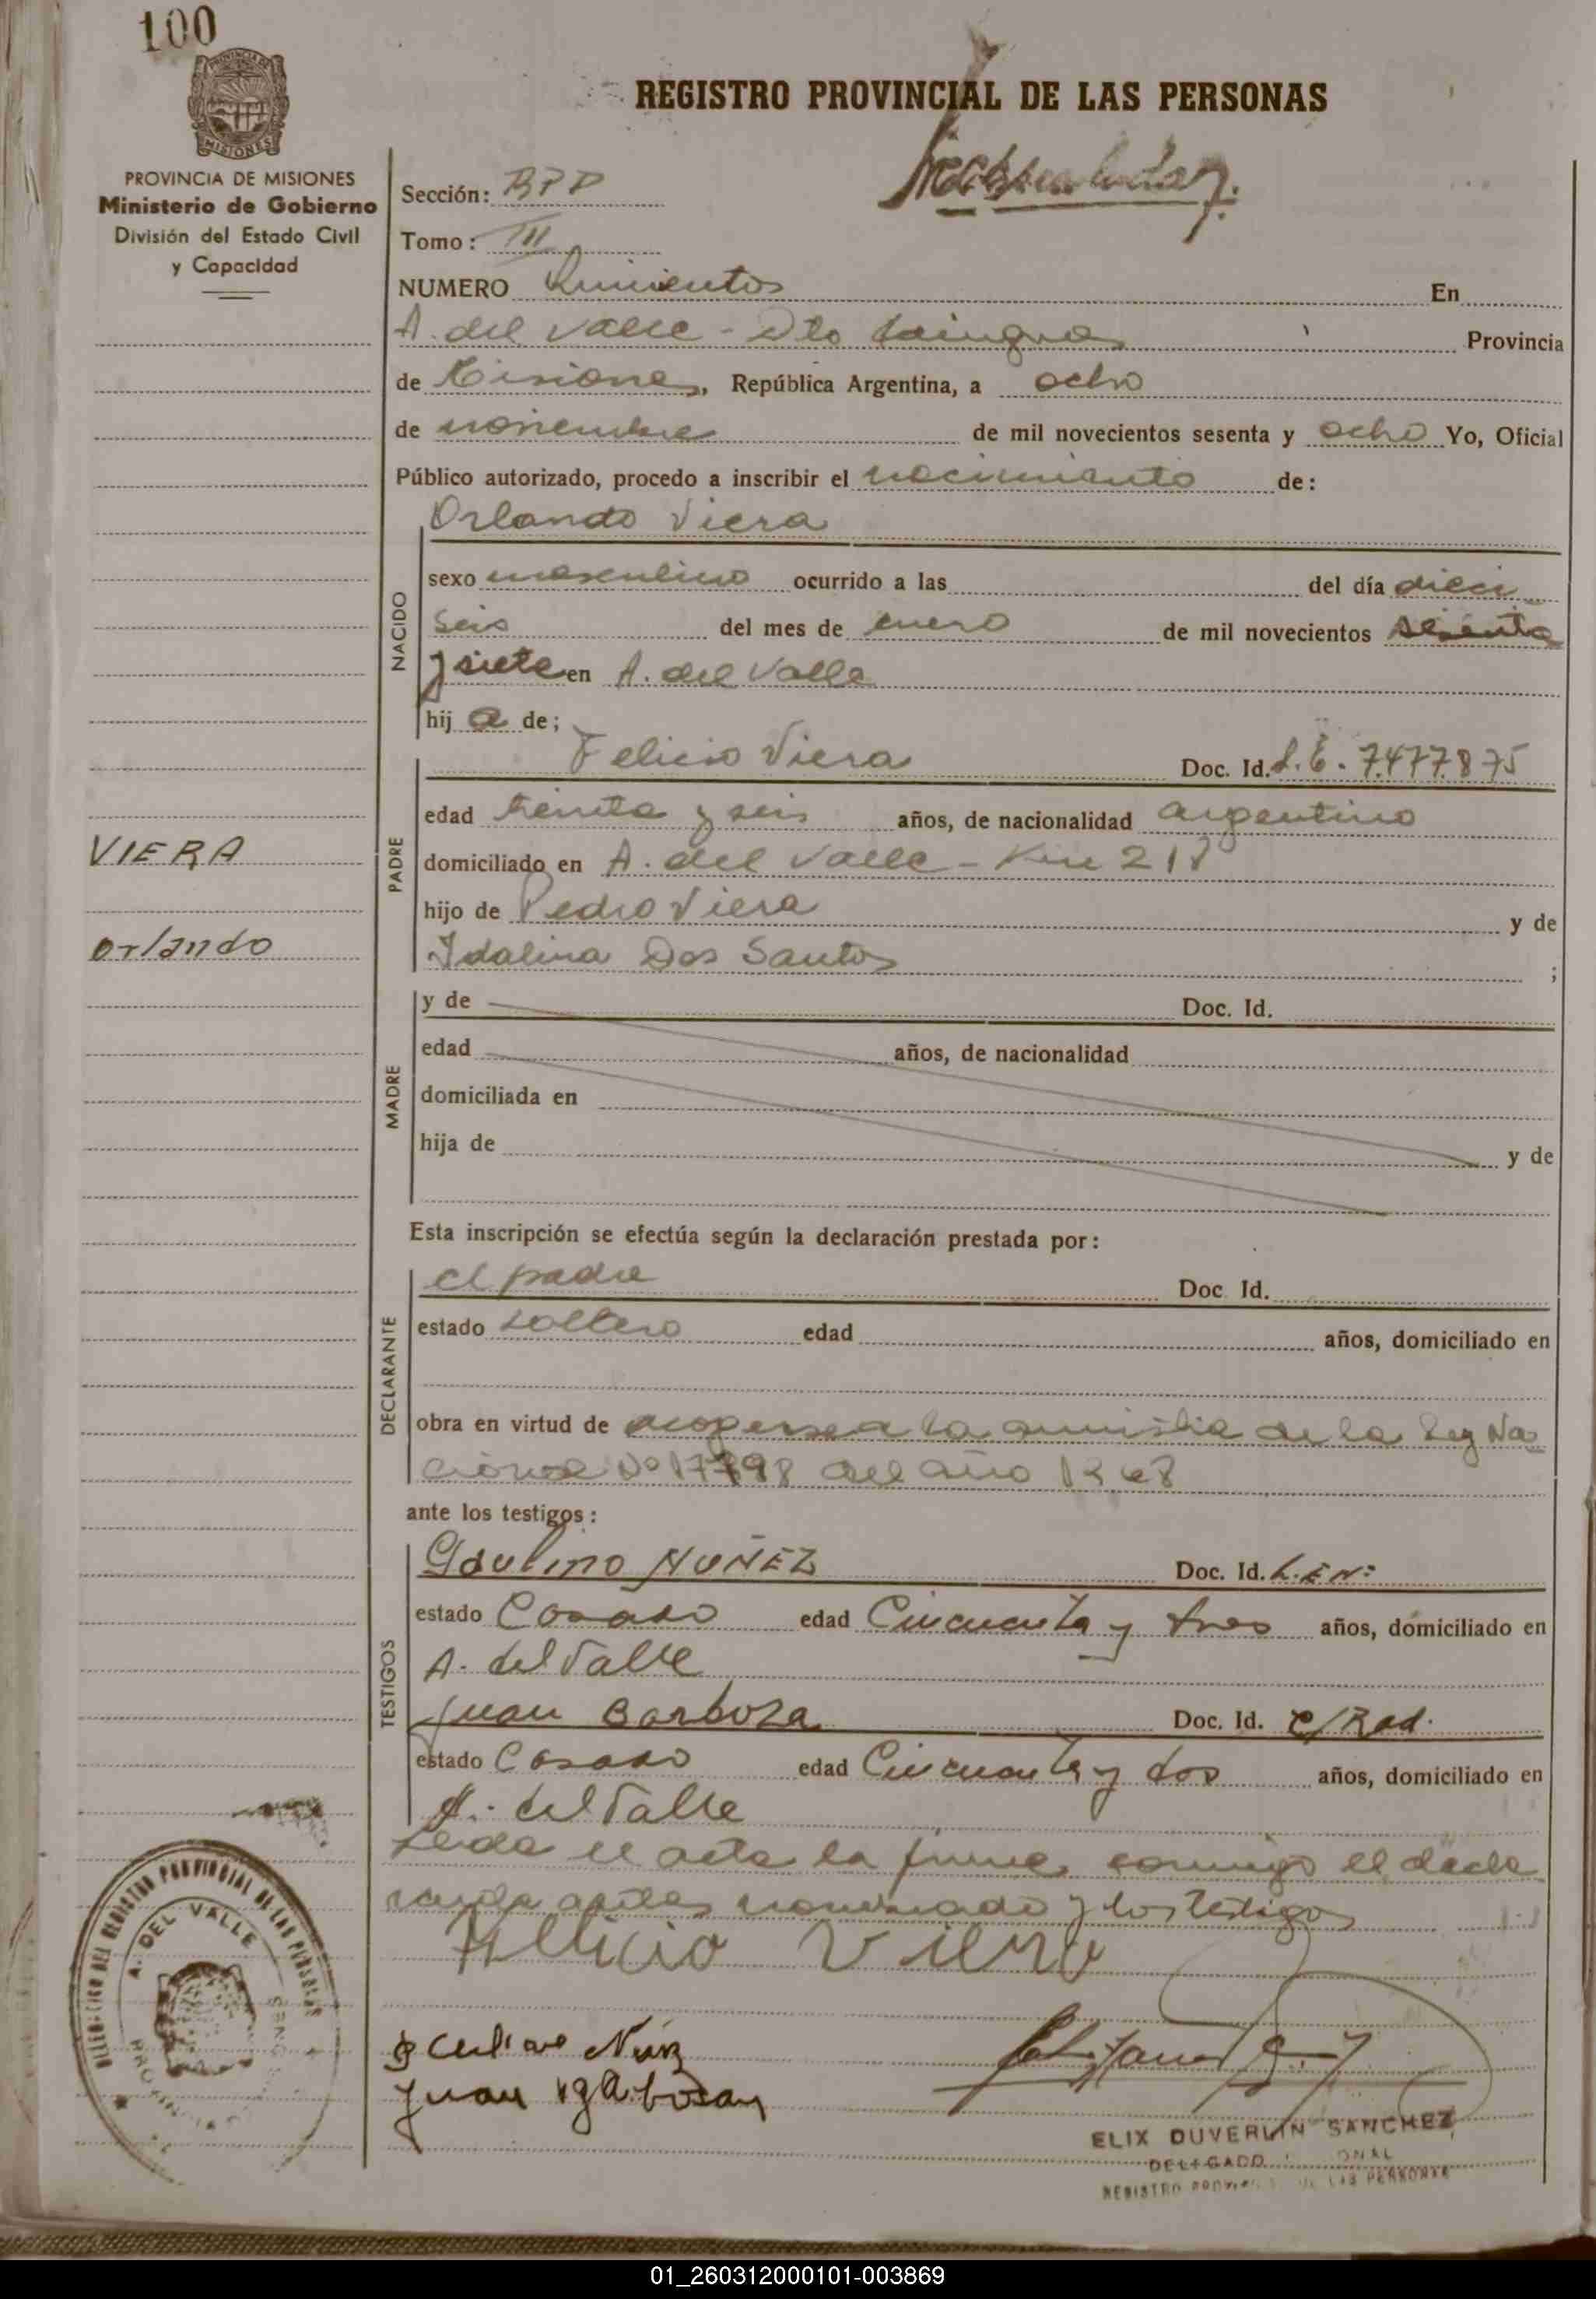 100
REGISTRO PROVINCIAL DE LAS PERSONAS
PROVINCIA DE MISIONES
Ministerio de Gobierno
División del Estado Civil
y Capacidad
Sección:
Tomo: III
NUMERO Quinientos En
A. del Valle - Dto Cainguas Provincia
de Misiones, República Argentina, a ocho
de noviembre de mil novecientos sesenta y ocho Yo, Oficial
Público autorizado, procedo a inscribir el nacimiento de:
Orlando Viera
NACIDO
sexo masculino ocurrido a las del día dieci
seis del mes de enero de mil novecientos sesenta
y siete en A. del Valle
hij o de;
PADRE
Felicio Viera Doc. Id. L.E. 7.477.875
edad treinta y seis años, de nacionalidad argentino
domiciliado en A. del Valle - Km 218
hijo de Pedro Viera y de
Idalina Dos Santos ;
VIERA
Orlando
MADRE
y de Doc. Id.
edad años, de nacionalidad
domiciliada en
hija de y de
Esta inscripción se efectúa según la declaración prestada por:
DECLARANTE
el padre Doc Id.
estado soltero edad años, domiciliado en
obra en virtud de acogerse a la amnistia de la Ley Na
cional Nº 17798 del año 1968
ante los testigos:
TESTIGOS
NUÑEZ Doc. Id. L.E Nº
estado Casado edad Cincuenta y tres años, domiciliado en
A. del Valle
Juan Barboza Doc. Id. C/Rad.
estado Casado edad Cincuenta y dos años, domiciliado en
A. del Valle
Leida el acta la firma conmigo el decla
rante antes nombrado y los testigos
Felicio Viera
A. DEL VALLE
ELIX DUVERLIN SANCHEZ
01_260312000101-003869